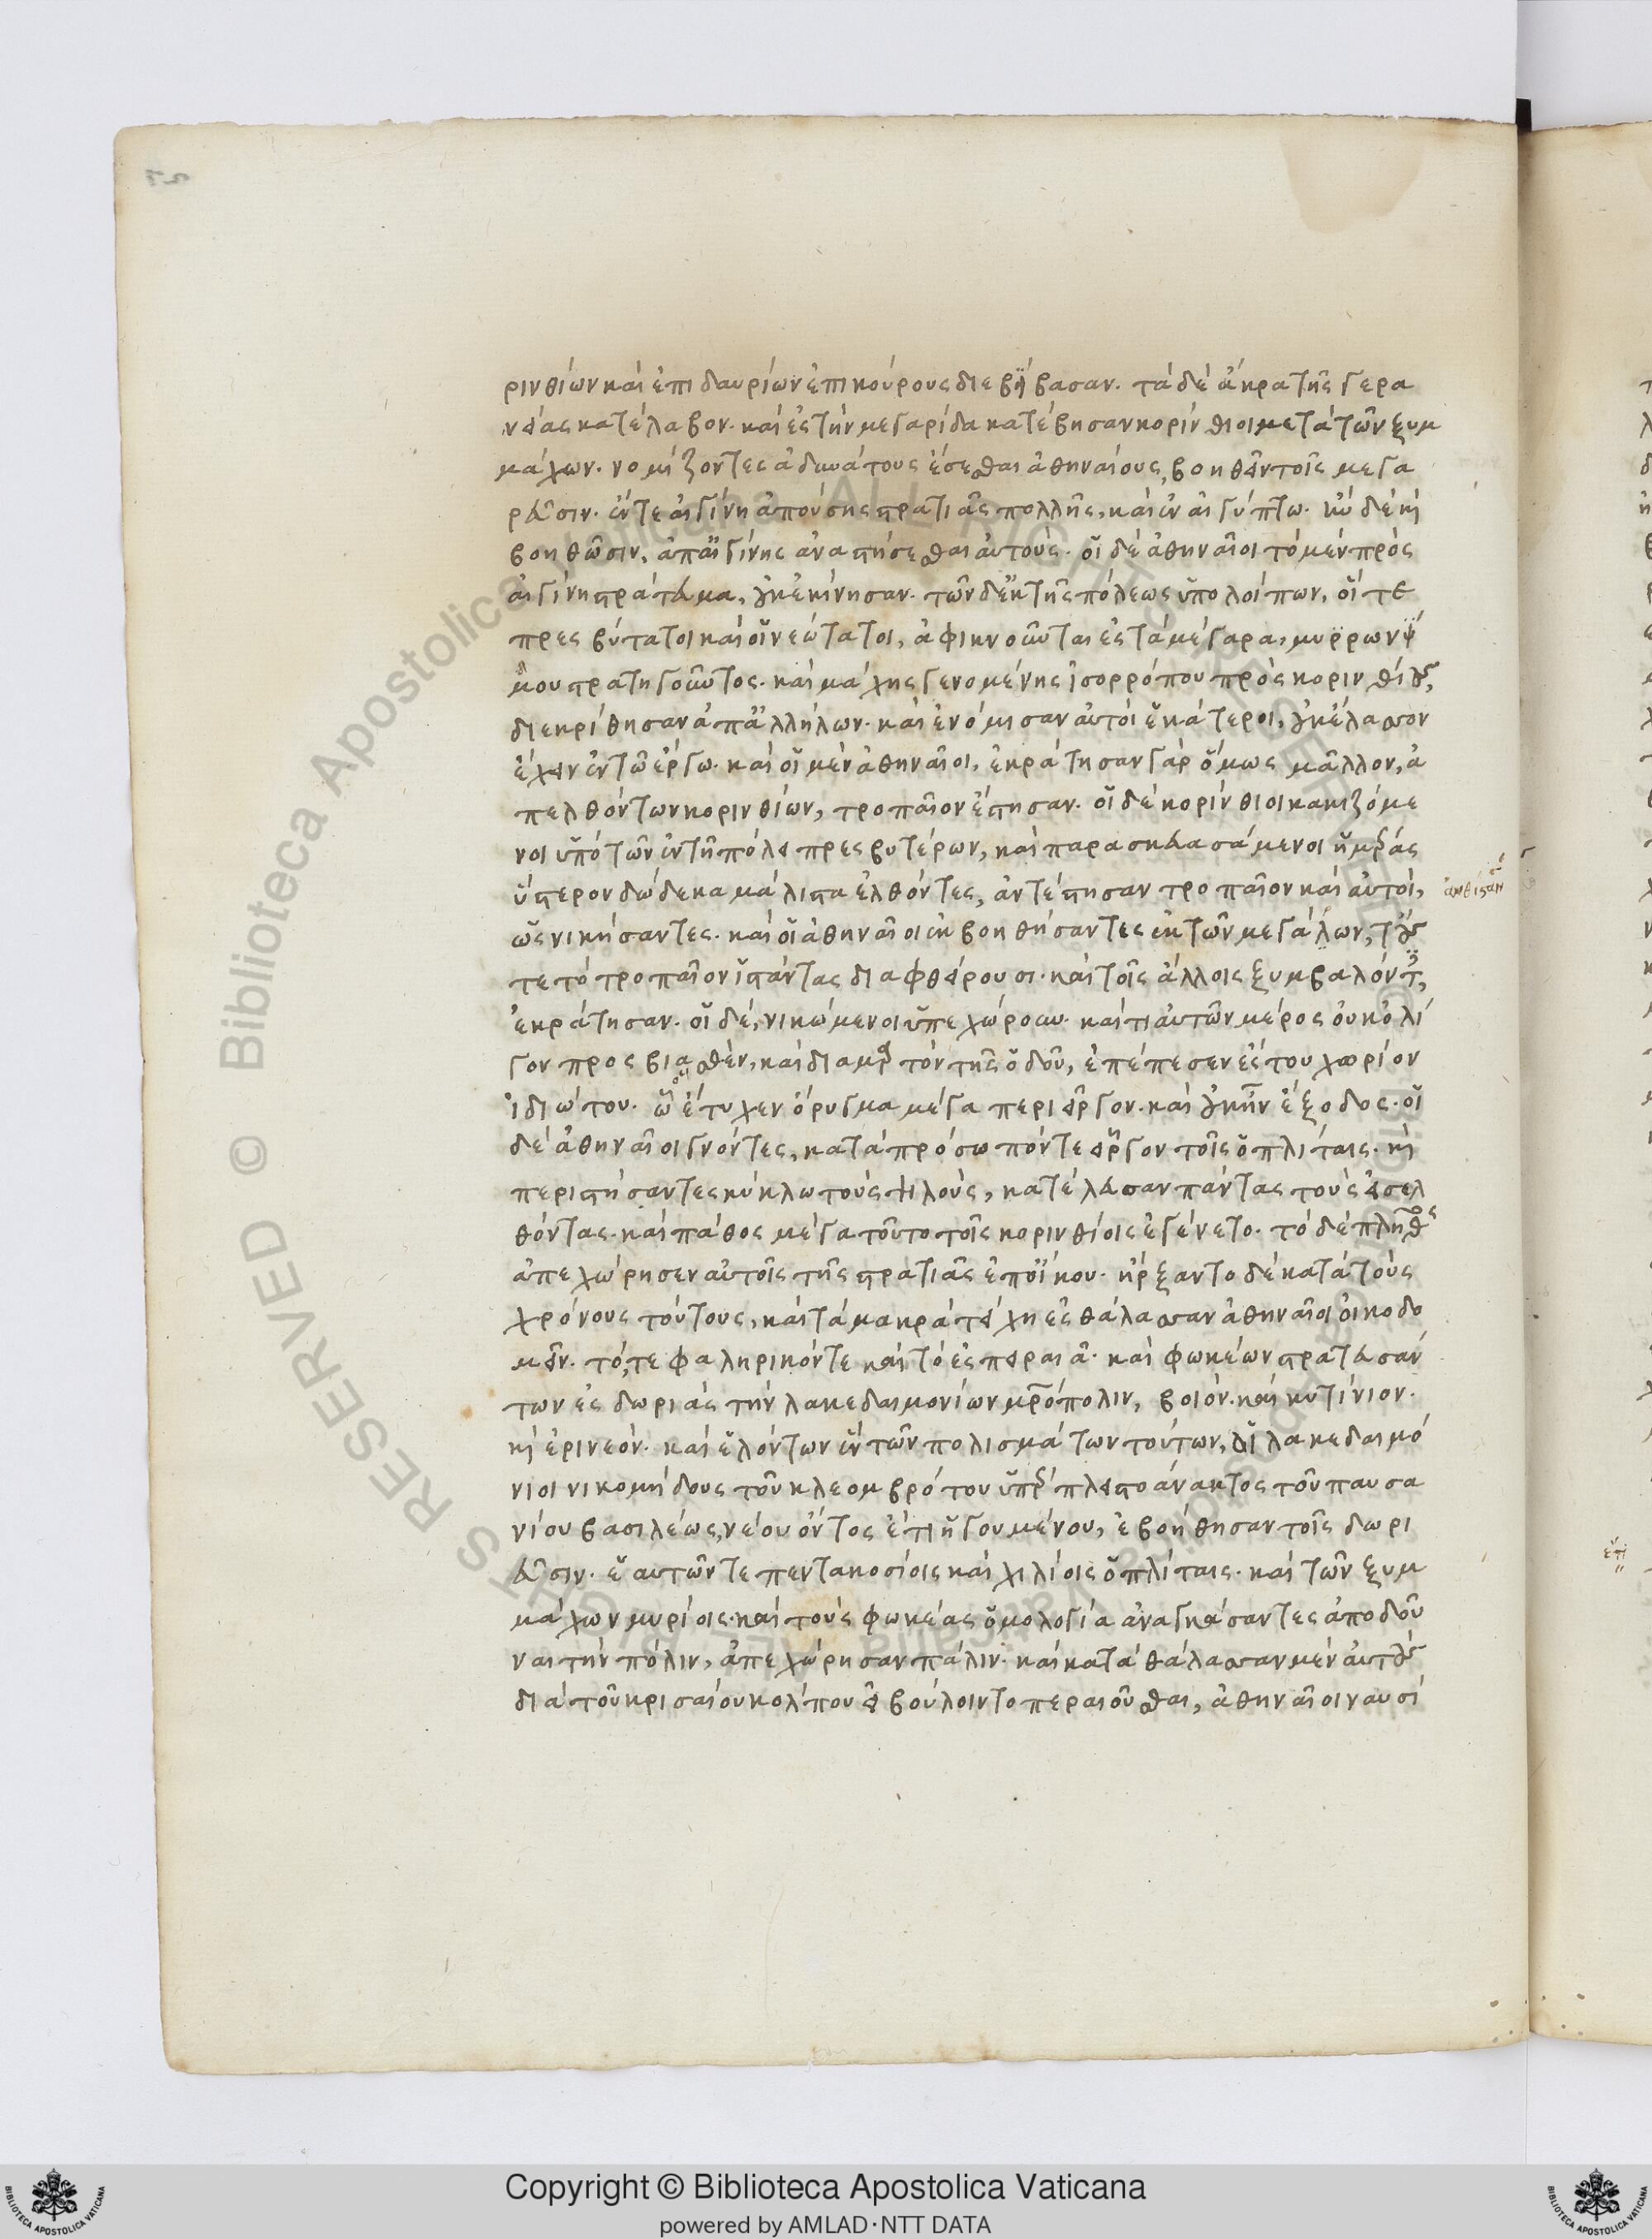 ρινθίων καὶ ἐπιδαυρίων ἐπικούρους διεβήβασαν. τὰ δὲ ἄκρα τῆς γερα
νείας κατέλαβον. καὶ ἐς τὴν μεγαρίδα κατέβησαν κορίνθιοι μετὰ τῶν ξυμ
μάχων. νομίζοντες ἀδυνάτους ἔσεσθαι ἀθηναίους, βοηθεῖν τοῖς μεγα
ρεῦσιν. ἔν τε αἰγίνη ἀπούσης στρατιᾶς πολλῆς, καὶ ἐν αἰγύπτω. ἢν δὲ κὶ
βοηθῶσιν, ἀπ' αἰγίνης ἀναστήσεσθαι αὐτούς. οἱ δὲ ἀθηναῖοι τὸ μὲν πρὸς
αἰγίνη στράτευμα, οὐκ ἐκίνησαν. τῶν δ' ἐκ τῆς πόλεως ὑπολοίπων, οἵ τε
πρεσβύτατοι καὶ οἱ νεώτατοι, ἀφικνοῦνται ἐς τὰ μέγαρα, μυρρωνί
μου στρατηγοῦντος. καὶ μάχης γενομένης ἰσορρόπου πρὸς κορινθίους,
διεκρίθησαν ἀπ' ἀλλήλων. καὶ ἐνόμισαν αὐτοὶ ἑκάτεροι, οὐκ ἔλασσον
ἔχειν ἐν τῶ ἔργω. καὶ οἱ μὲν ἀθηναῖοι, ἐκράτησαν γὰρ ὅμως μᾶλλον, ἀ
πελθόντων κορινθίων, τροπαῖον ἔστησαν. οἱ δὲ κορίνθιοι κακιζόμε
νοι ὑπὸ τῶν ἐν τῆ πόλει πρεσβυτέρων, καὶ παρασκευασάμενοι ἡμέρας
ὕστερον δώδεκα μάλιστα ἐλθόντες, ἀντέστησαν τροπαῖον καὶ αὐτοί,
ἀνθίστασαν
ὡς νικήσαντες. καὶ οἱ ἀθηναῖοι ἐκβοηθήσαντες ἐκ τῶν μεγάλων, τούς
τε τὸ τροπαῖον ἱστάντας διαφθείρουσι. καὶ τοῖς ἄλλοις ξυμβαλόντες,
ἐκράτησαν. οἱ δὲ, νικώμενοι ὑπεχώρουν. καί τι αὐτῶν μέρος οὐκ ὀλί
γον προσβιασθὲν, καὶ διαμαρτὸν τῆς ὁδοῦ, ἐπέπεσεν ἔς του χωρίον
ἰδιώτου. ὧ ἔτυχεν ὄρυγμα μέγα περιεῖργον. καὶ οὐκ ἦν ἔξοδος. οἱ
δὲ ἀθηναῖοι γνόντες, κατὰ πρόσωπόν τε εἶργον τοῖς ὁπλίταις. κὶ
περιστήσαντες κύκλω τοὺς ψιλοὺς, κατέλευσαν πάντας τοὺς ἐσελ
θόντας. καὶ πάθος μέγα τοῦτο τοῖς κορινθίοις ἐγένετο. τὸ δὲ πλῆθος
ἀπεχώρησεν αὐτοῖς τῆς στρατιᾶς ἐπ' οἴκου. ἤρξαντο δὲ κατὰ τοὺς
χρόνους τούτους, καὶ τὰ μακρὰ τείχη ἐς θάλασσαν ἀθηναῖοι οἰκοδο
μεῖν. τό, τε φαληρικόν τε καὶ τὸ ἐς πειραιᾶ. καὶ φωκέων στρατευσάν
των ἐς δωριᾶς τὴν λακεδαιμονίων μητρόπολιν, βοιόν. καὶ κυτίνιον.
κὶ ἐρινεόν. καὶ ἑλόντων ἓν τῶν πολισμάτων τούτων, οἱ λακεδαιμό
νιοι νικομήδους τοῦ κλεομβρότου ὑπὲρ πλειστοάνακτος τοῦ παυσα
νίου βασιλέως, νέου ὄντος ἔτι ἡγουμένου, ἐβοήθησαν τοῖς δωρι
εῦσιν. ἑαυτῶν τε πεντακοσίοις καὶ χιλίοις ὁπλίταις. καὶ τῶν ξυμ
μάχων μυρίοις. καὶ τοὺς φωκέας ὁμολογία ἀναγκάσαντες ἀποδοῦ
ναι τὴν πόλιν, ἀπεχώρησαν πάλιν. καὶ κατὰ θάλασσαν μὲν αὐτοὺς
διὰ τοῦ κρισαίου κολπου εἰ βούλοιντο περαιοῦσθαι, ἀθηναῖοι ναυσί
© Biblioteca Apostolica Vaticana ALL RIGHTS RESERVED
Copyright © Biblioteca Apostolica Vaticana
powered by AMLAD·NTT DATA